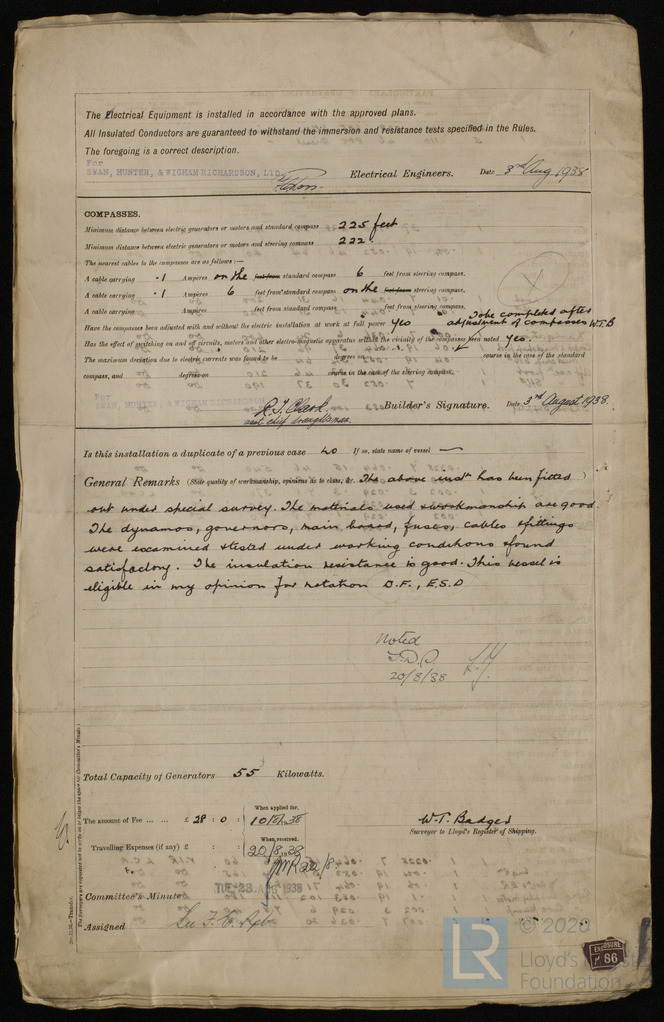 The Electrical Equipment is installed in accordance with the approved plans.
All Insulated Conductors are guaranteed to withstand the immersion and resistance tests specified in the Rules.
The foregoing is a correct description.
For
SWAN, HUNTER, & WIGHAM RICHARDSON, LTD.
Electrical Engineers. Date 3rd Aug 1938
COMPASSES.
Minimum distance between electric generators or motors and standard compass 225 feet
Minimum distance between electric generators or motors and steering compass 222.
The nearest cables to the compasses are as follows:—
A cable carrying .1 Amperes on the feet from standard compass 6 feet from steering compass.
A cable carrying .1 Amperes 6 feet from standard compass on the feet from steering compass.
A cable carrying Amperes feet from standard compass feet from steering compass.
To be completed after
Have the compasses been adjusted with and without the electric installation at work at full power yes adjustment of compasses W.T.B
Has the effect of switching on and off circuits, motors and other electro-magnetic apparatus within the vicinity of the compasses been noted yes.
The maximum deviation due to electric currents was found to be degrees on course in the case of the standard
compass, and degrees on course in the case of the steering compass.
For
SWAN, HUNTER, & WIGHAM RICHARDSON
R. T. Clark Builder's Signature. Date 3rd August 1938.
asst chief draughtsman
Is this installation a duplicate of a previous case No If so, state name of vessel —
General Remarks (State quality of workmanship, opinions as to class, &c. The above instn has been fitted
out under special survey. The materials used & workmanship are good.
The dynamos, governors, main board, fuses, cables & fittings
were examined & tested under working conditions & found
satisfactory. The insulation resistance is good. This vessel is
eligible in my opinion for notation D.F., E.S.D
Noted
20/8/38
Total Capacity of Generators 55 Kilowatts.
The amount of Fee ... ... £ 28 : 0 :
When applied for,
W.T. Badger
Surveyor to Lloyd's Register of Shipping.
Travelling Expenses (if any) £ : :
When received,
20/8/1938
TUE. 23 AUG 1938
Committee's Minute
Assigned
The Surveyors are requested not to write on or below the space for Committee's Minute.
LR
© 2020
Lloyd's Register
Foundation
EXPOSURE
86